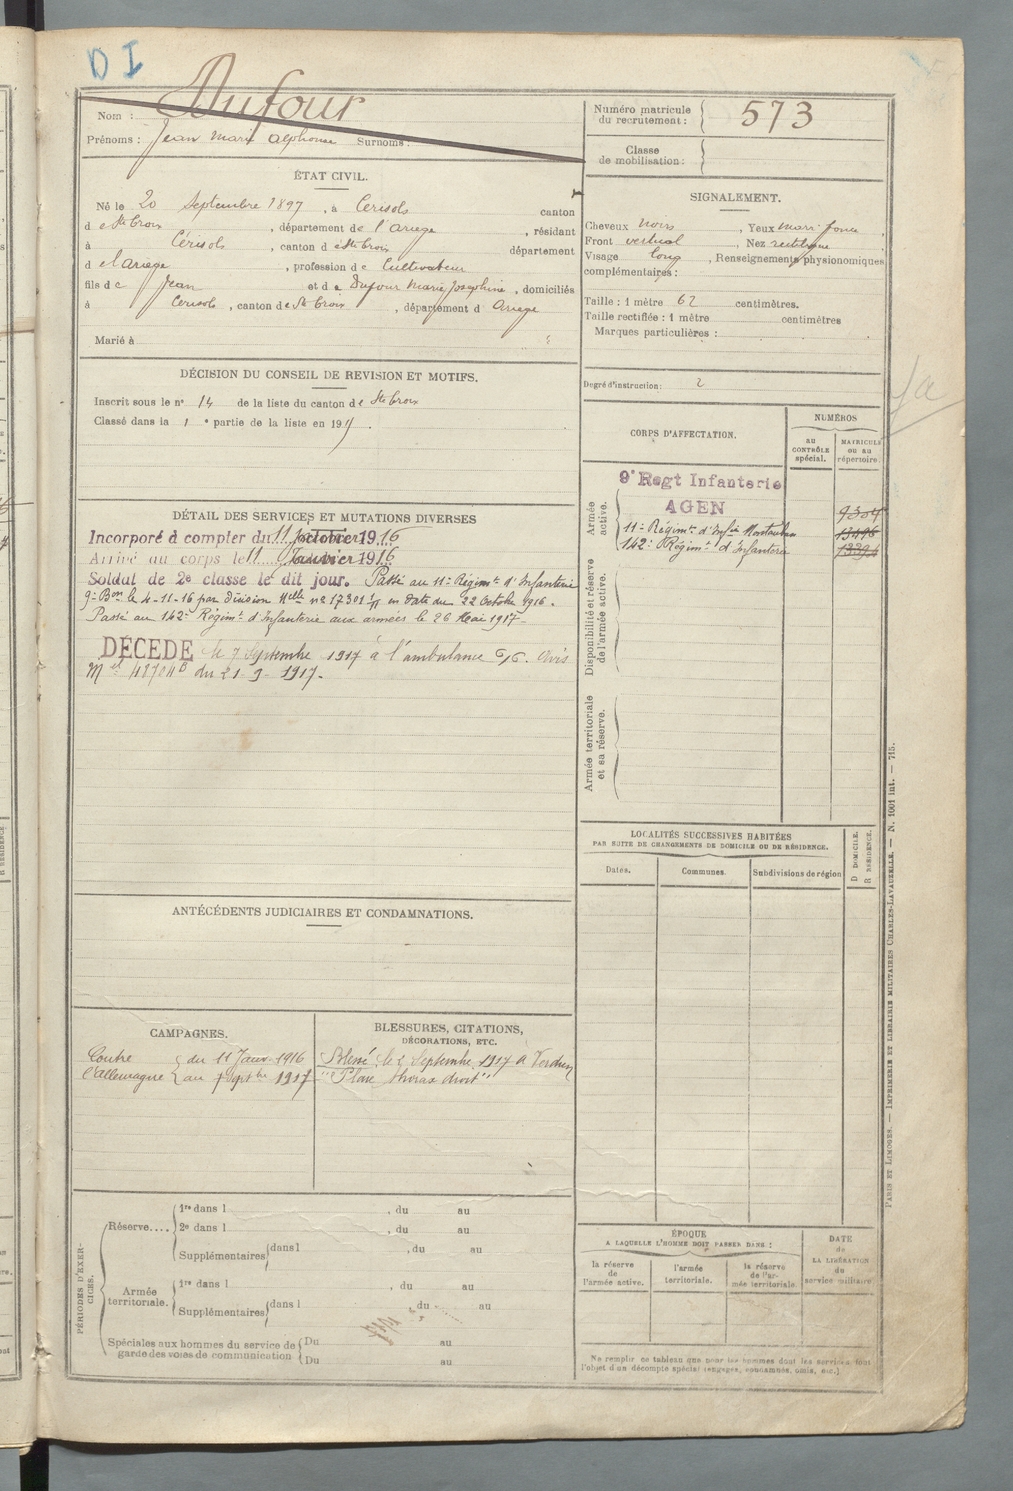 D I
Nom : Dufour
Prénoms : Jean Marie Alphonse Surnoms :
Numéro matricule
du recrutement : 573
Classe
de mobilisation :
ÉTAT CIVIL.
Né le 20 Septembre 1897, à Cerisols canton
d e Ste Croix, département de l'Ariege, résidant
à Cérisols, canton d e Ste Croix département
d el'Ariege, profession de Cultivateur
fils de Jean et de Dufour Marie Josephine, domiciliés
à Cerisols, canton de Ste Croix, département d Ariege
Marié à
SIGNALEMENT.
Cheveux noirs, Yeux
Front vertical, Nez rectiligne
Visage long, Renseignements physionomiques
complémentaires :
Taille : 1 mètre 62 centimètres.
Taille rectifiée : 1 mètre centimètres
Marques particulières :
Degré d'instruction : 2
DÉCISION DU CONSEIL DE REVISION ET MOTIFS.
Inscrit sous le n° 14 de la liste du canton de Ste Croix
Classé dans la 1 e partie de la liste en 191
CORPS D'AFFECTATION.
NUMÉROS
au
CONTRÔLE
spécial.
MATRICULE
ou au
répertoire.
Armée
active.
9e Regt Infanterie
AGEN
11e Régimt d'Infie Montauban
142e Régimt d'Infanterie
Disponibilité et réserve
de l'armée active.
Armée territoriale
et sa réserve.
DÉTAIL DES SERVICES ET MUTATIONS DIVERSES
Incorporé à compter du 11 1916
Arrivé au corps le 11 Janvier 1916
Soldat de 2e classe le dit jour. Passé au 11e Régimt d'Infanterie
9e Bon le 4-11-16 par décision Melle no 17301 en date du 22 Octobre 1916.
Passé au 142e Régimt d'Infanterie aux armées le 26 Mai 1917
DÉCÉDÉ le 7 Septembre 1917 à l'ambulance 6/6. Avis
Mel 48704B du 21-9-1917.
LOCALITÉS SUCCESSIVES HABITÉES
PAR SUITE DE CHANGEMENTS DE DOMICILE OU DE RÉSIDENCE.
Dates.
Communes.
Subdivisions de région
D DOMICILE.
R RÉSIDENCE.
ANTÉCÉDENTS JUDICIAIRES ET CONDAMNATIONS.
CAMPAGNES.
Contre du 11 Janv. 1916
l'Allemagne au 7 Septbre 1917
BLESSURES, CITATIONS,
DÉCORATIONS, ETC.
Blessé le 2 Septembre 1917 à Verdun
"Plaie thorax droit"
PÉRIODES D'EXER-
CICES.
Réserve....
1re dans l , du au
2e dans l , du au
Supplémentaires dans l , du au
Armée
territoriale.
1re dans l , du au
Supplémentaires dans l , du au
Spéciales aux hommes du service de
garde des voies de communication
Du au
Du au
ÉPOQUE
A LAQUELLE L'HOMME DOIT PASSER DANS :
la réserve
de
l'armée active.
l'armée
territoriale.
la réserve
de l'ar-
mée territoriale.
DATE
de
LA LIBÉRATION
du
service militaire
Ne remplir ce tableau que pour les hommes dont les services font
l'objet d'un décompte spécial (engagés, condamnés, omis, etc.)
PARIS ET LIMOGES. — IMPRIMERIE ET LIBRAIRIE MILITAIRES CHARLES-LAVAUZELLE. — N. 1001 int. — 715.